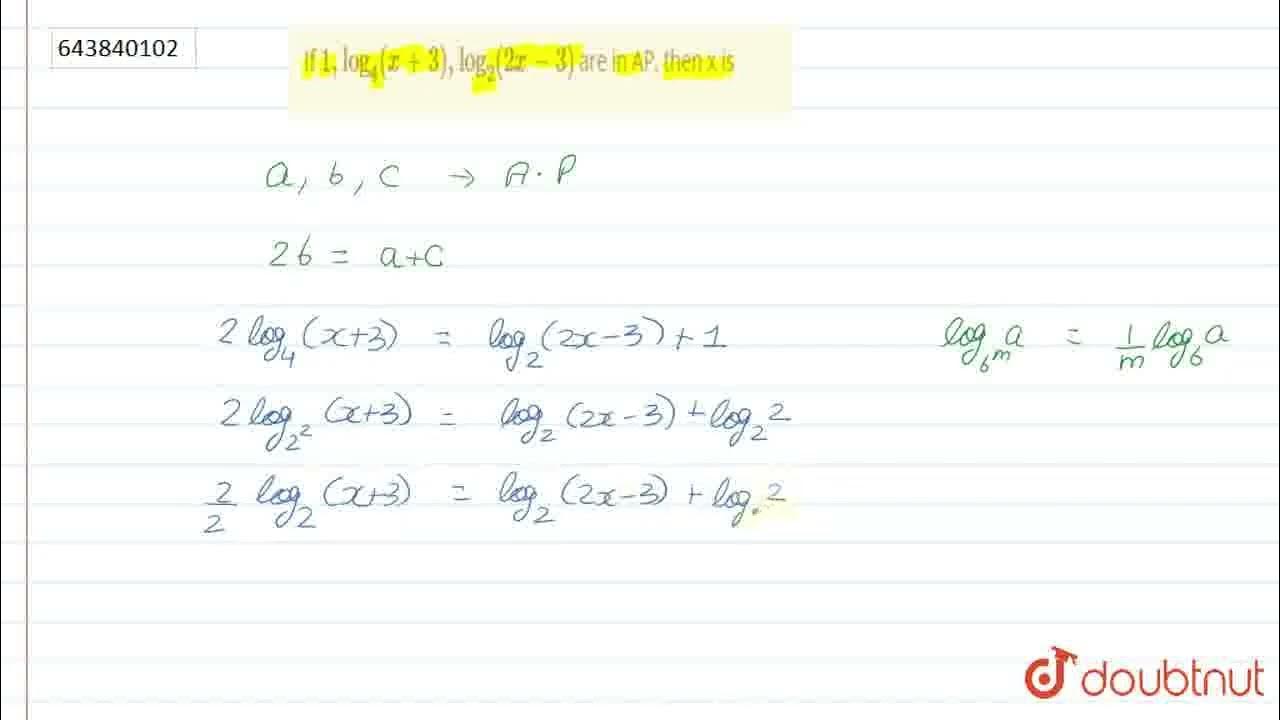 643840102
If 1, log₄(x + 3), log₂(2x − 3) are in AP. then x is
a, b, c → A.P
2b = a+c
2 log₄ (x+3) = log₂ (2x−3) + 1
log_{b^m} a = 1/m log_b a
2 log_{2²} (x+3) = log₂ (2x−3) + log₂ 2
2/2 log₂ (x+3) = log₂ (2x−3) + log 2
doubtnut